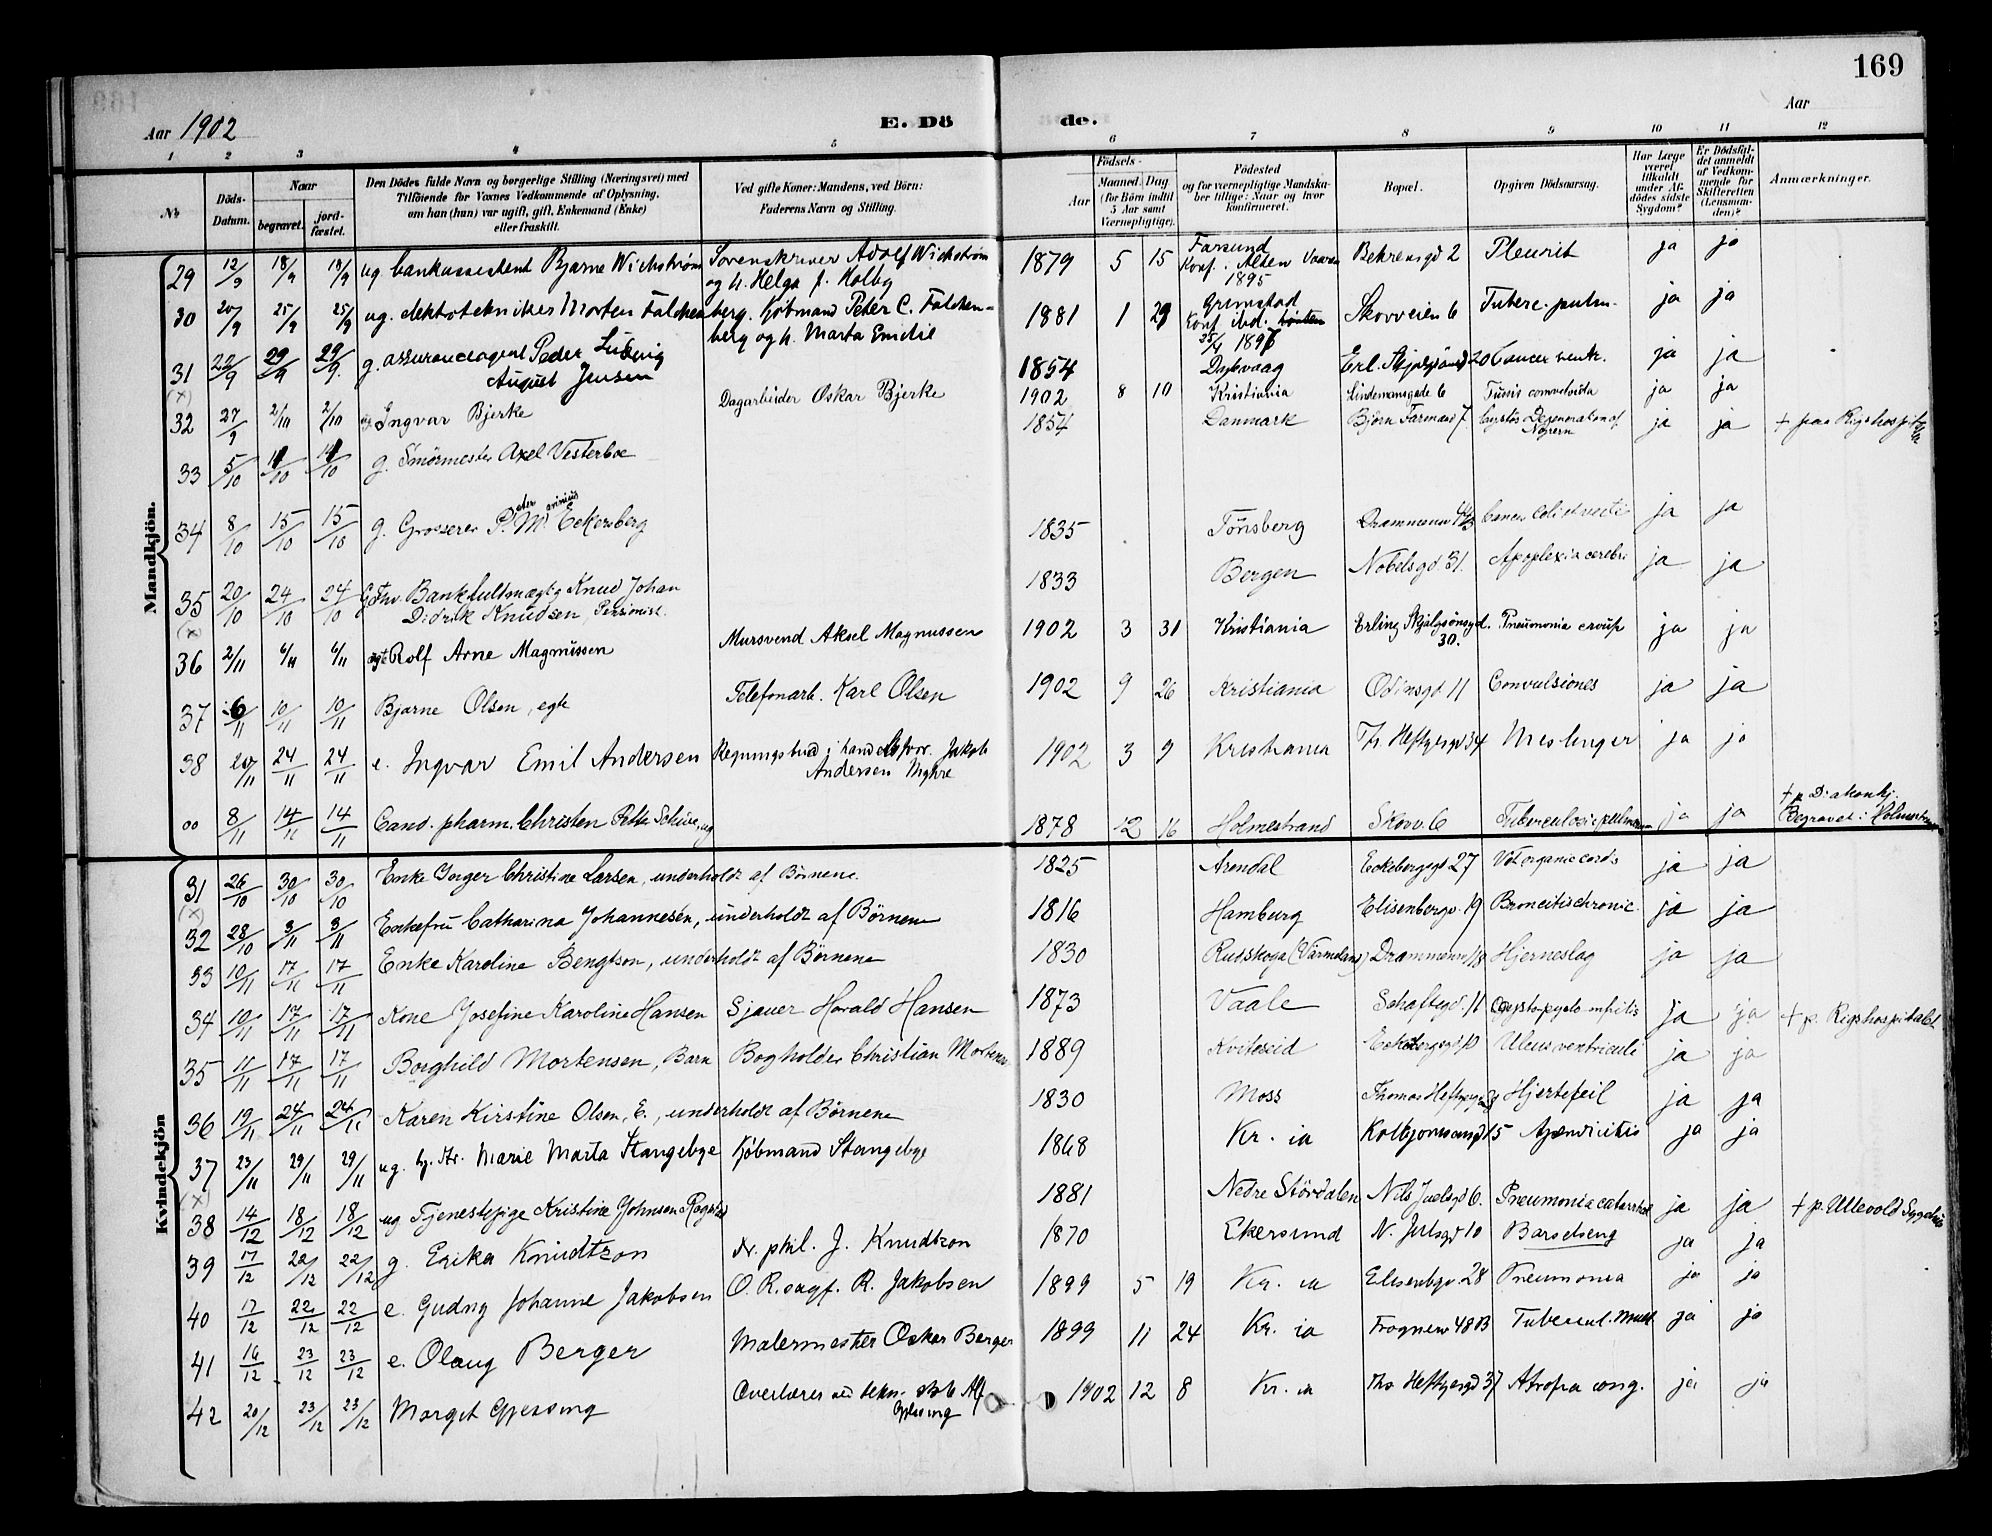 169
Aar 1902
E. Dö
de.
Aar
1 2 3 4 5 6 7 8 9 10 11 12
№
Döds-Datum.
Naar
begravet.
jord-fæstet.
Den Dödes fulde Navn og borgerlige Stilling (Næringsvei) med
Tilföiende for Voxnes Vedkommende af Oplysning,
om han (hun) var ugift, gift, Enkemand (Enke)
eller fraskilt.
Ved gifte Koner: Mandens, ved Börn:
Faderens Navn og Stilling.
Födsels-
Aar
Maaned. Dag
(for Börn indtil
5 Aar samt
Værnepligtige).
Födested
og for værnepligtige Mandska-
ber tillige: Naar og hvor
konfirmeret.
Bopæl.
Opgiven Dödsaarsag.
Har Læge
været
tilkaldt
under Af-
dödes sidste
Sygdom?
Er Dödsfal-
det anmeldt
af Vedkom-
mende for
Skifteretten
(Lensman-
den)?
Anmærkninger.
Mandkjön.
29 12/9 18/9 18/9 ug. bankassistent Bjarne Wichström Sorenskriver Adolf Wichström 1879 5 15 Farsund Behrensgd 2 Pleurit ja ja
og h. Helga f. Holby Konf. i Alten Vaaren
1895
30 20/9 25/9 25/9 ug. elektrotekniker Morten Falchenberg. Kjöbmand Peter C. Falchen- 1881 1 29 Grimstad Skovveien 6 Tuberc. pulm. ja ja
berg og h. Marta Emilie Konf. ibd.
31 22/9 29/9 29/9 g. assuranceagent Peder Ludvig 1854 Dybvaag Erl. Skjalgsönsgd 20 Cancer ventr. ja ja
August Jensen
(x)
32 27/9 2/10 2/10 Ingvar Bjerke Dagarbeider Oskar Bjerke 1902 8 10 Kristiania Lindemansgade 6 Tussis convulsiva ja ja
33 5/10 11/10 11/10 g. Smörmester Axel Vesterboe 1854 Danmark Björn Farmand 7 Cystös Degeneration af Nyrern ja ja + paa Rigshospitalet
34 8/10 15/10 15/10 g. Grosserer Peter M Eckersberg 1835 Tönsberg Drammensv Cancer Coli ja ja
35 20/10 24/10 24/10 Gift fhv. Bankfuldmægtig Knud Johan 1833 Bergen Nobelsgd 31. Apoplexia cerebri ja ja
Didrik Knudsen, Pensionist.
(x)
36 2/11 6/11 6/11 egte Rolf Arne Magnussen Mursvend Aksel Magnussen 1902 3 31 Kristiania Erling Skjalgsönsgd. 30. Pneumonia croup ja ja
37 6/11 10/11 10/11 Bjarne Olsen, egte Telefonarb. Karl Olsen 1902 9 26 Kristiania Odinsgd 11 Convulsiones ja ja
38 20/11 24/11 24/11 e. Ingvar Emil Andersen Regningsbud i handelsforr. Jakob 1902 3 9 Kristiania Th. Heftyesgd 34 Meslinger ja ja
Andersen Myhre
00 8/11 14/11 14/11 Cand. pharm. Christen Petter Schive, ug 1878 12 16 Holmestrand Skovv. 6 Tuberculosis pulmonum ja ja + p. Diakonhj.
Begravet i Holmestrand
Kvindekjön
31 26/10 30/10 30/10 Enke Inger Christine Larsen, underholdt af Börnene. 1825 Arendal Eckebergsgd 27 Vit. organic cordis ja ja
(x)
32 28/10 3/11 3/11 Enkefru Catharina Johannesén, underholdt af Börnene 1816 Hamburg Elisenbergv. 19 Broncitis chronic. ja ja
33 10/11 17/11 17/11 Enke Karoline Bengtson, underholdt af Börnene 1830 Rudskoga (Värmeland) Drammensv 18 Hjerneslag ja ja
34 10/11 17/11 17/11 Kone Josefine Karoline Hansen Sjauer Harald Hansen 1873 Vaale Schaftsgd. 11 ja ja + p. Rigshospitalet
35 11/11 17/11 17/11 Borghild Mortensen, Barn Bogholder Christian Mortensen 1889 Kviteseid Eckebergsgd 10 Ulcus ventriculi ja ja
36 19/11 24/11 24/11 Karen Kirstine Olsen, E., underholdt af Börnene 1830 Moss Thomas Heftyesgd Hjertefeil ja ja
37 23/11 29/11 29/11 ug. Marie Marta Stangebye Kjöbmand Stangebye 1868 Kr. ia Kolbjörnsensgd 15 Apendicitis ja ja
(x)
38 14/12 18/12 18/12 ug Tjenestepige Kristine Johnsen 1881 Nedre Störvdalen Nils Juelsgd 6. Pneumonia catarrhal ja ja + p. Ullevold Sygehus
39 17/12 22/12 22/12 g. Erika Knudtzon Dr. phil. J. Knudtzon 1870 Ekersund N. Juelsgd 10 Barselseng ja ja
40 17/12 22/12 22/12 e. Gudny Johanne Jakobsen O. R. sagf. R. Jakobsen 1899 5 19 Kr. ia Elisenbgv 28 Pneumonia ja ja
41 16/12 23/12 23/12 e. Olaug Berger Malermester Oskar Berger 1899 11 24 Kr. ia Frognerv 48 B Tubercul. ja ja
42 20/12 23/12 23/12 Margit Gjessing Overlærer ved tekn. skole Alf 1902 12 8 Kr. ia Ths Heftyesgd 37 Atrofia cong. ja ja
Gjessing